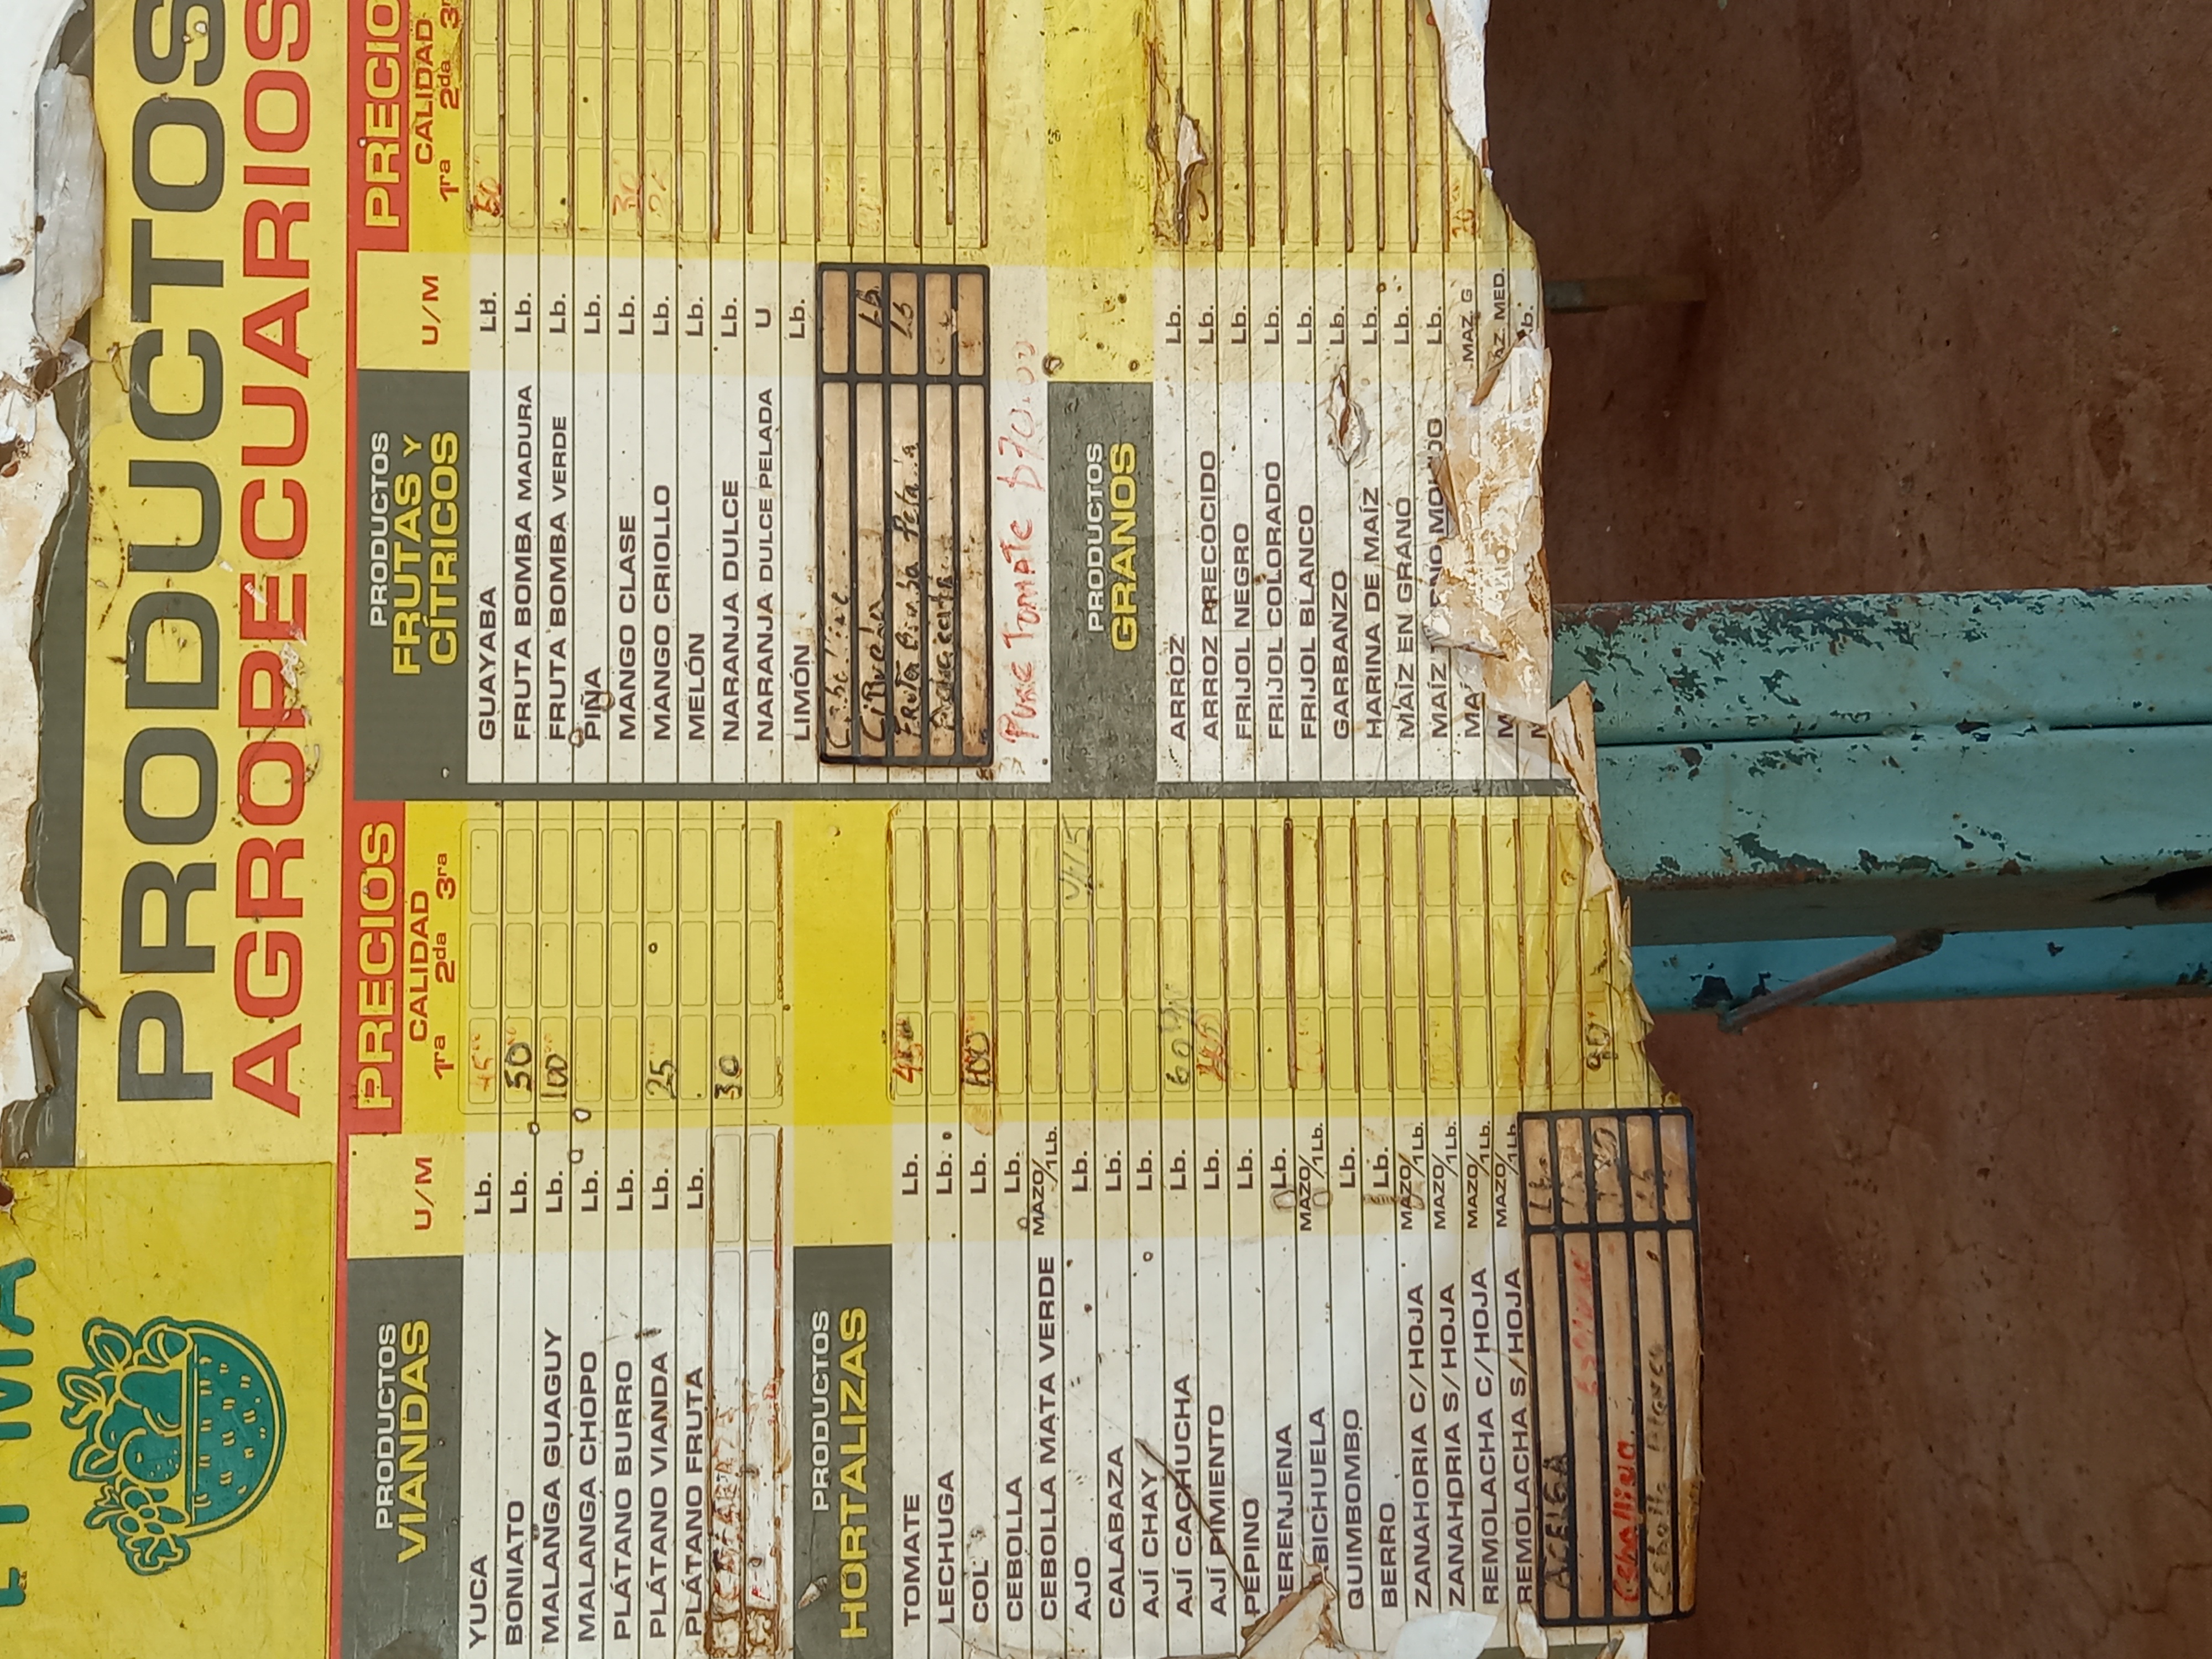 PRODUCTOS
AGROPECUARIOS
PRODUCTOS
VIANDAS
U/M
PRECIOS
CALIDAD
1ra 2da 3ra
YUCA Lb. 45
BONIATO Lb. 50
MALANGA GUAGUY Lb. 100
MALANGA CHOPO Lb.
PLÁTANO BURRO Lb.
PLÁTANO VIANDA Lb. 25
PLÁTANO FRUTA Lb.
30
PRODUCTOS
HORTALIZAS
TOMATE Lb. 45
LECHUGA Lb.
COL Lb. 100
CEBOLLA Lb.
CEBOLLA MATA VERDE MAZO/1Lb.
AJO Lb.
CALABAZA Lb.
AJÍ CHAY Lb.
AJÍ CACHUCHA Lb. 60
AJÍ PIMIENTO Lb.
PEPINO Lb.
BERENJENA Lb.
ABICHUELA MAZO/1Lb.
QUIMBOMBO Lb.
BERRO Lb.
ZANAHORIA C/HOJA MAZO/1Lb.
ZANAHORIA S/HOJA MAZO/1Lb.
REMOLACHA C/HOJA MAZO/1Lb.
REMOLACHA S/HOJA MAZO/1Lb.
ACELGA Lb.
90
Cebollino
Cebolla Blanca Lb
PRODUCTOS
FRUTAS Y
CÍTRICOS
U/M
PRECIO
CALIDAD
1ra 2da 3r
GUAYABA Lb. 50
FRUTA BOMBA MADURA Lb.
FRUTA BOMBA VERDE Lb.
PIÑA Lb.
MANGO CLASE Lb. 30
MANGO CRIOLLO Lb.
MELÓN Lb.
NARANJA DULCE Lb.
NARANJA DULCE PELADA U
LIMÓN Lb.
CiRuela Lb
FRuta Bomba Lb
PURE TOMATE $70.00
PRODUCTOS
GRANOS
ARROZ Lb.
ARROZ PRECOCIDO Lb.
FRIJOL NEGRO Lb.
FRIJOL COLORADO Lb.
FRIJOL BLANCO Lb.
GARBANZO Lb.
HARINA DE MAÍZ Lb.
MAÍZ EN GRANO Lb.
MAÍZ Lb.
MAÍ MAZ. G 20
M AZ. MED.